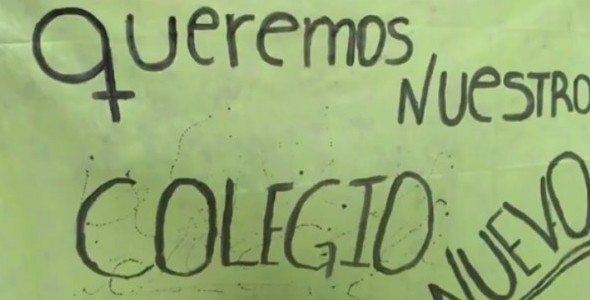 queremos
NUESTRO
COLEGIO
NUEVO